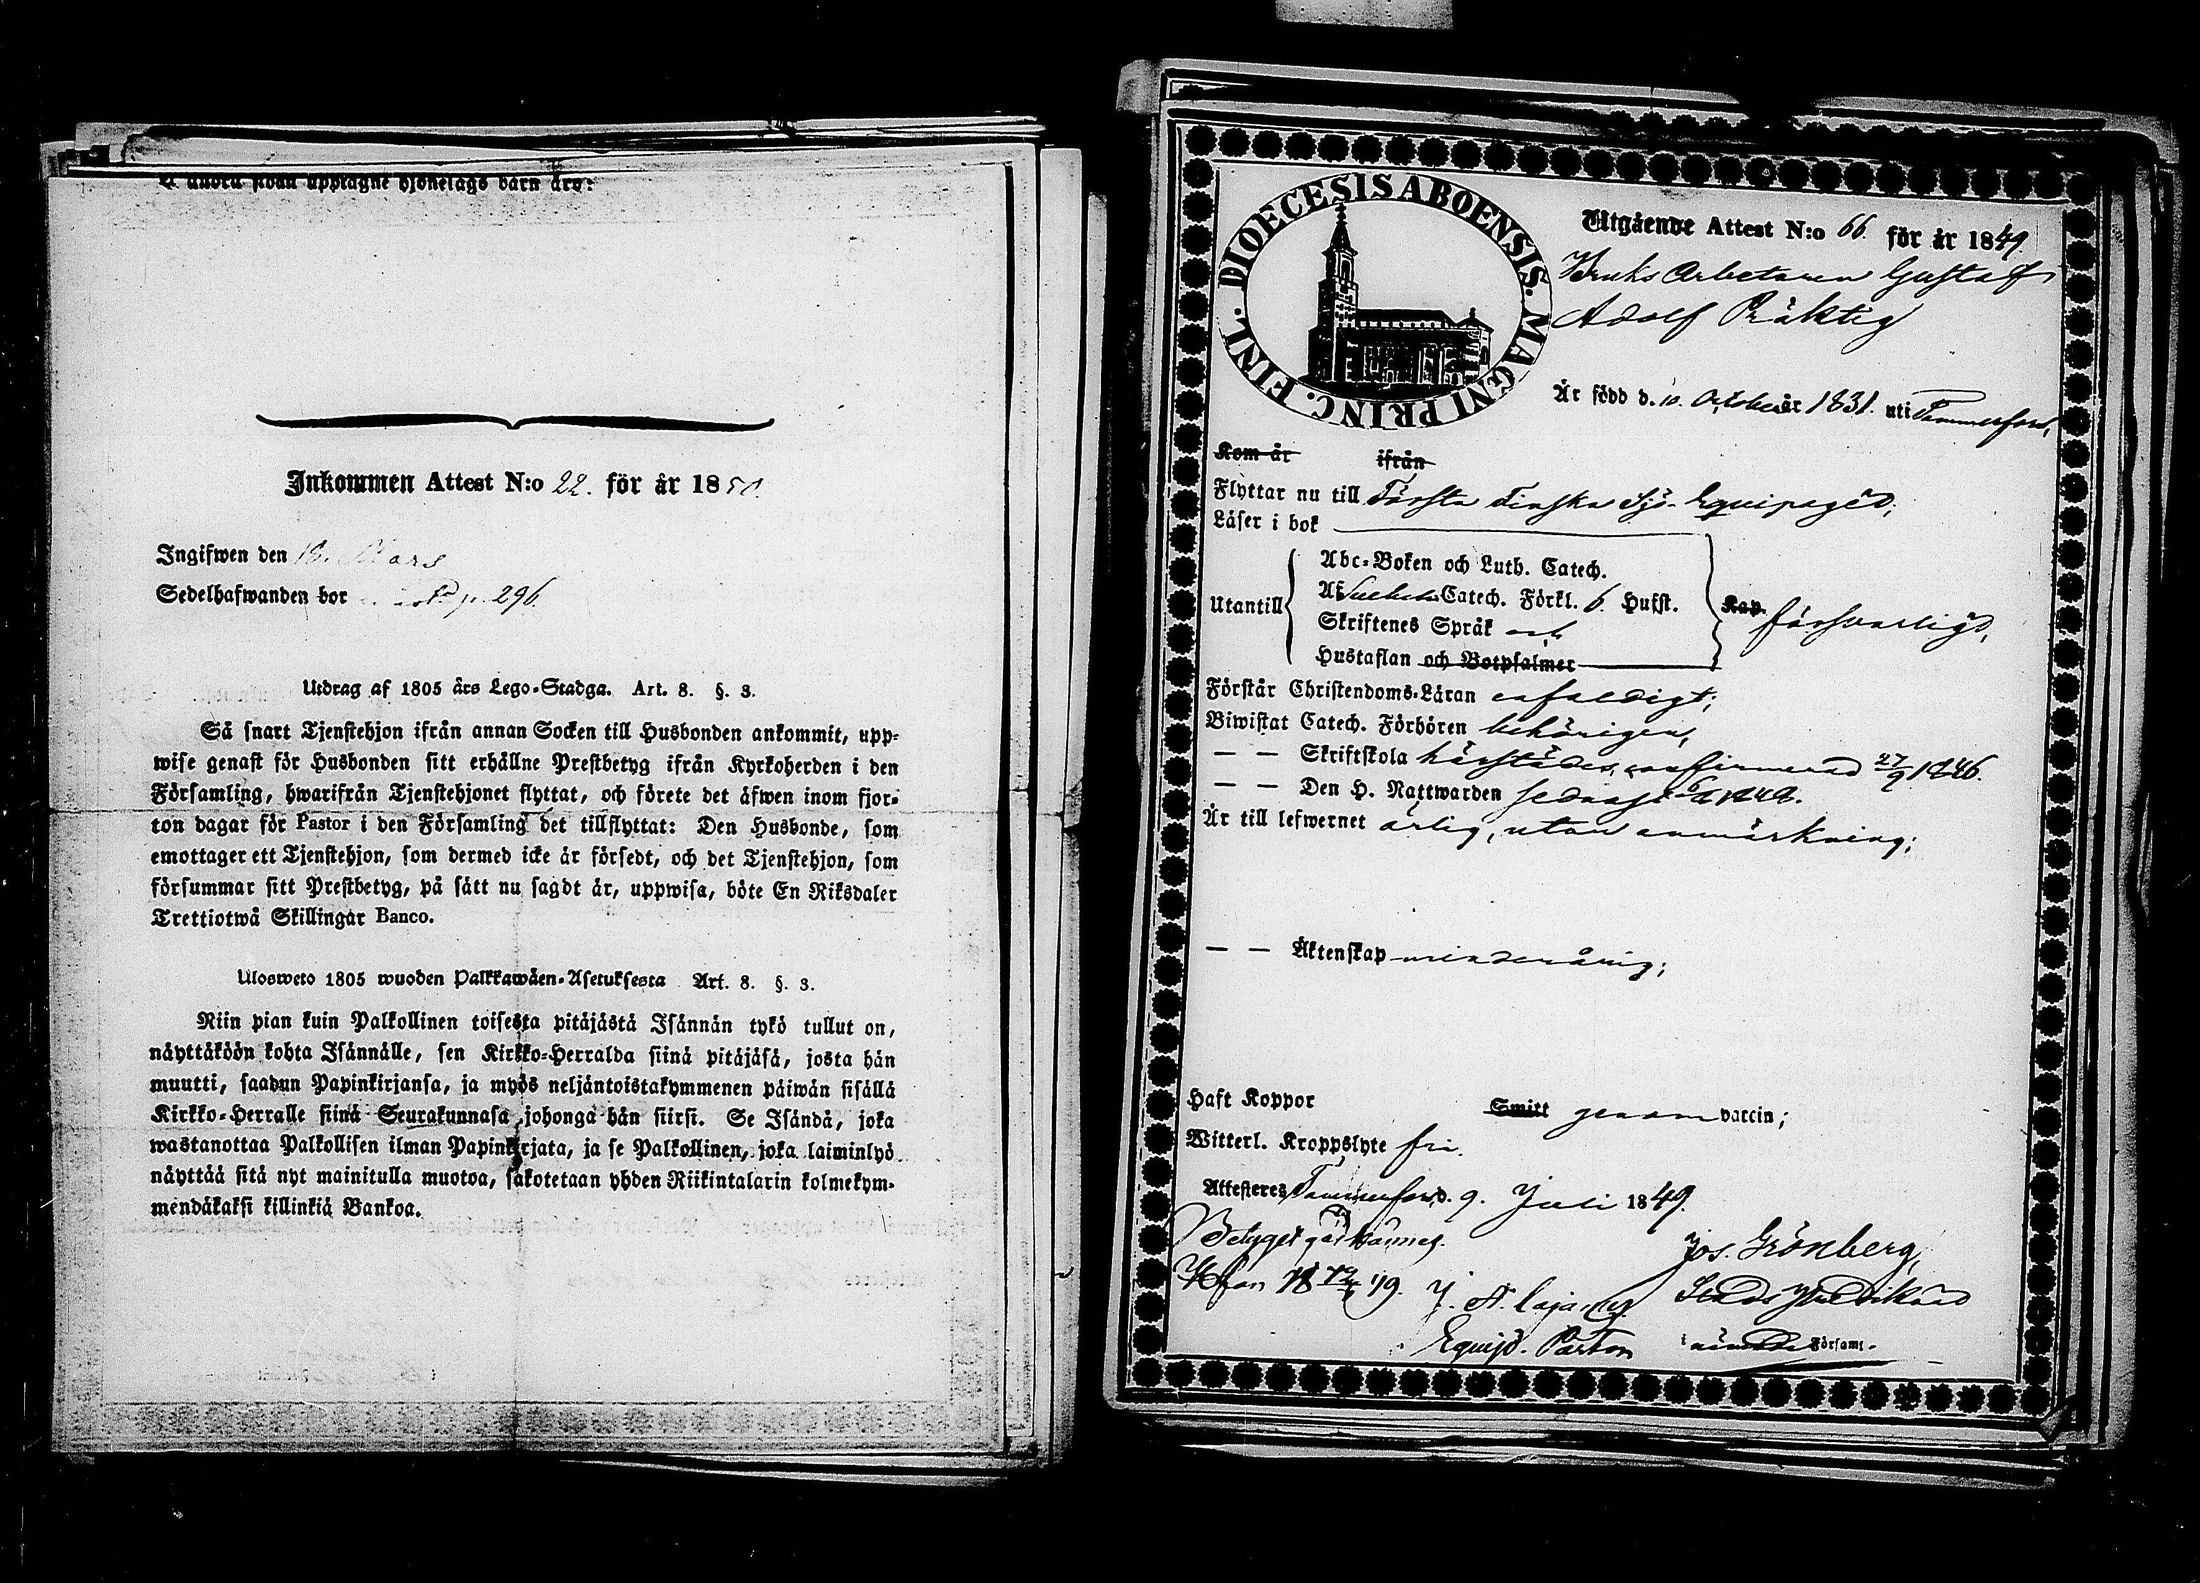 å andra sidan upptagne hjonelags barn äro:
Inkommen Attest N:o 22. för år 1850.
Ingifwen den 18. Mars
Sedelhafwanden bor p. 296.
Utdrag af 1805 års Lego-Stadga. Art. 8. §. 3.
Så snart Tjenstehjon ifrån annan Socken till Husbonden ankommit, upp-
wise genast för Husbonden sitt erhållne Prestbetyg ifrån Kyrkoherden i den
Församling, hwarifrån Tjenstehjonet flyttat, och förete det äfwen inom fjor-
ton dagar för Pastor i den Församling det tillflyttat: Den Husbonde, som
emottager ett Tjenstehjon, som dermed icke är försedt, och det Tjenstehjon, som
försummar sitt Prestbetyg, på sätt nu sagdt är, uppwisa, böte En Riksdaler
Trettiotwå Skillingar Banco.
Ulosweto 1805 wuoden Palkkawäen-Asetuksesta Art. 8. §. 3.
Niin pian kuin Palkollinen toisesta pitäjästä Isännän tykö tullut on,
näyttäköön kohta Isännälle, sen Kirkko-Herralda siinä pitäjäsä, josta hän
muutti, saadun Papinkirjansa, ja myös neljäntoistakymmenen päiwän sisällä
Kirkko-Herralle siinä Seurakunnasa johonga hän siirsi. Se Isändä, joka
wastanottaa Palkollisen ilman Papinkirjata, ja se Palkollinen, joka laiminlyö
näyttää sitä nyt mainitulla muotoa, sakotetaan yhden Riikintalarin kolmekym-
mendäkaksi killinkiä Bankoa.
DIOECESIS ABOENSIS. MAGNI PRINC. FINL.
Utgående Attest N:o 66. för år 1849.
Bruks Arbetaren Gustaf
Adolf Präktig
Är född d. 10. October år 1831. uti Tammerfors,
Kom år ifrån
Flyttar nu till Första Finska Sjö-Equipaget;
Läser i bok
Utantill
Abc-Boken och Luth. Catech.
Af Svebelii Catech. Förkl. 6. Hufst.
Skriftenes Språk och
Hustaflan och Botpsalmer
Kap. försvarligt,
Förstår Christendoms-Läran enfaldigt;
Biwistat Catech. Förhören behörigen,
— — Skriftskola härstädes, confirmerad 27/9 1846.
— — Den H. Nattwarden sednast 1849.
Är till lefwernet ärlig, utan anmärkning;
— — Äktenskap minderårig;
Haft Koppor Smitt genom vaccin;
Witterl. Kroppslyte fri.
Attesteres, Tammerfors d. 9. Juli 1849.
Betyget
Jos. Grönberg,
Equip. Pastor
i nämnde Församl.